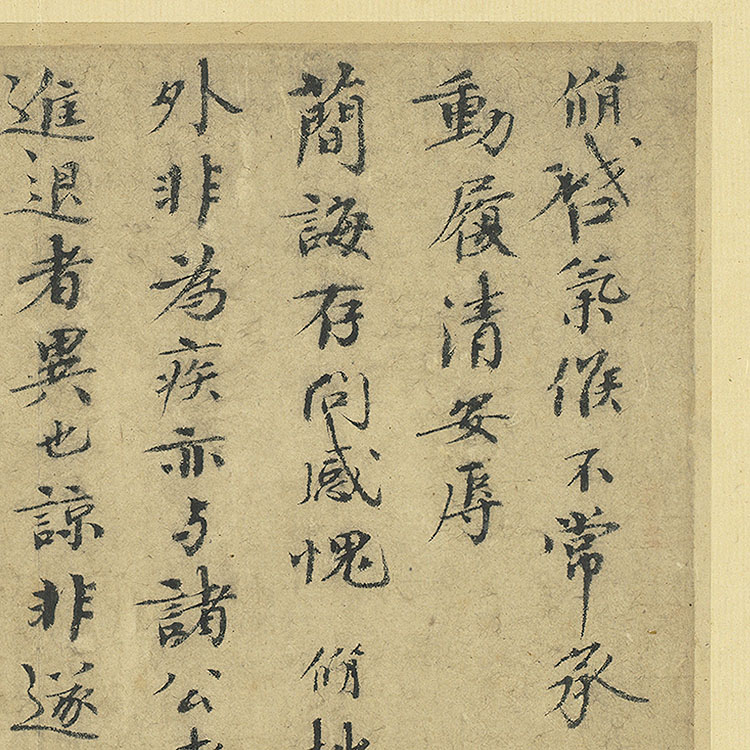 脩啓氣候不常承
動履清安辱
簡誨存問感愧脩
外非為疾亦与諸公
進退者異也諒非遂